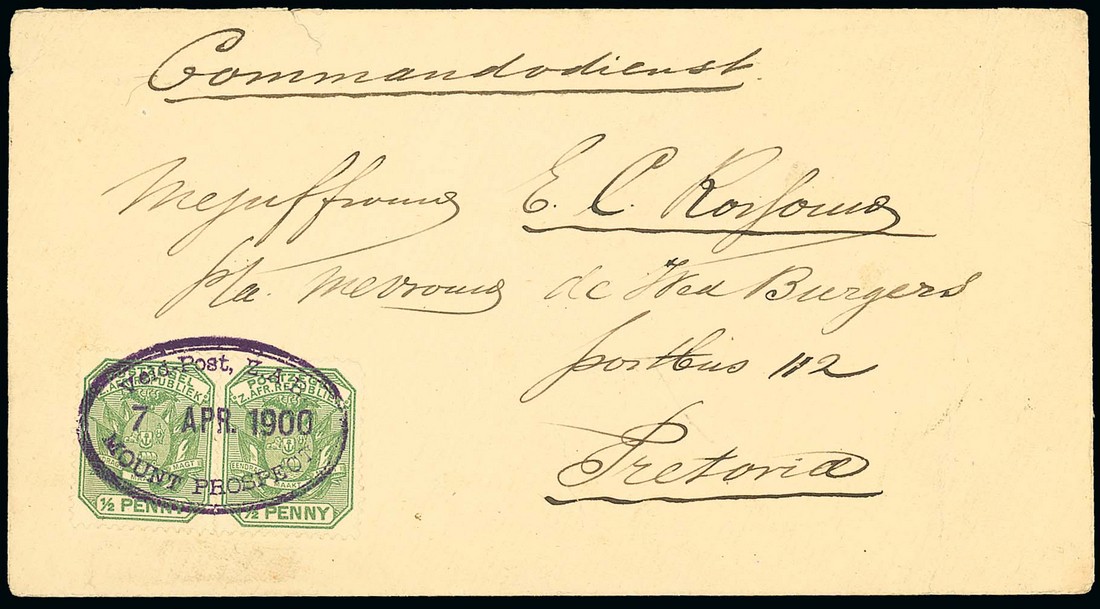 Commandodienst.
Mejuffrouw E. C.
p/a. Mevrouw de Wed Burgers
postbus 112
Pretoria
Veld-Post, Z.A.R.
7 APR. 1900
MOUNT PROSPECT
POSTZEGEL POSTZEGEL
Z.AFR.REPUBLIEK Z.AFR.REPUBLIEK
MAGT EENDR MAAKT
½ PENNY ½ PENNY